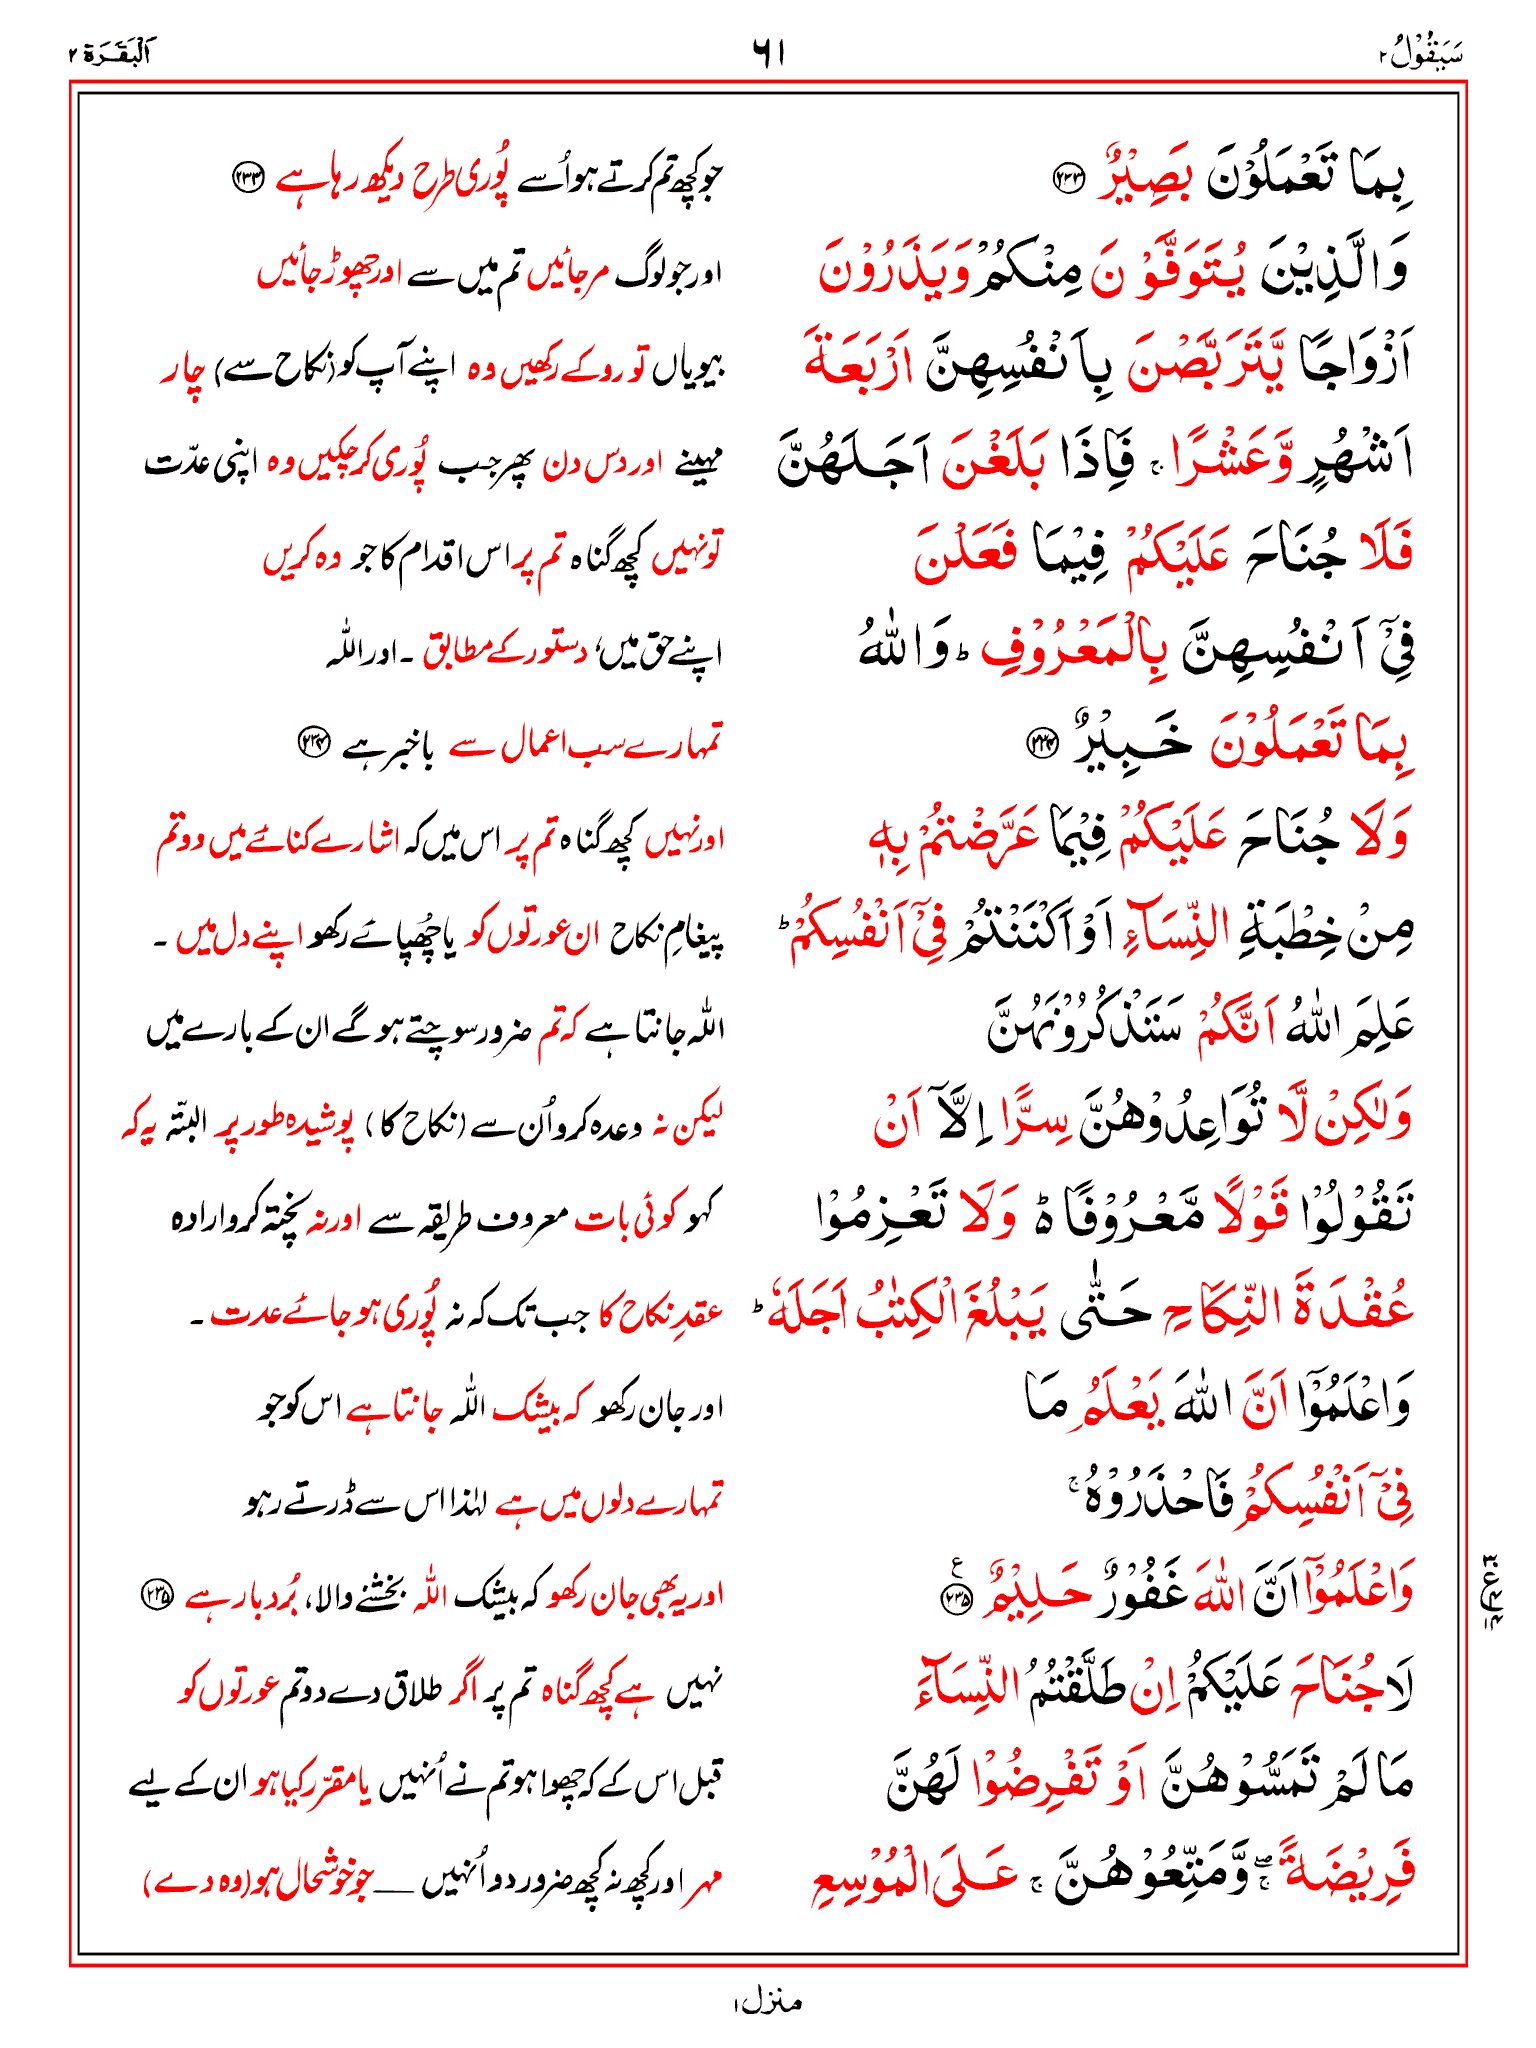 سَيَقُوْلُ ٢
٦١
اَلْبَقَرَة ٢
بِمَا تَعْمَلُوْنَ بَصِيْرٌ ﴿٢٣٣﴾
جو کچھ تم کرتے ہو اُسے پُوری طرح دیکھ رہا ہے ﴿٢٣٣﴾
وَالَّذِيْنَ يُتَوَفَّوْنَ مِنْكُمْ وَيَذَرُوْنَ
اور جو لوگ مرجائیں تم میں سے اور چھوڑ جائیں
اَزْوَاجًا يَّتَرَبَّصْنَ بِاَنْفُسِهِنَّ اَرْبَعَةَ
بیویاں تو روکے رکھیں وہ اپنے آپ کو (نکاح سے) چار
اَشْهُرٍ وَّعَشْرًا ۚ فَاِذَا بَلَغْنَ اَجَلَهُنَّ
مہینے اور دس دن پھر جب پُوری کرچکیں وہ اپنی عدّت
فَلَا جُنَاحَ عَلَيْكُمْ فِيْمَا فَعَلْنَ
تو نہیں کچھ گناہ تم پر اس اقدام کا جو وہ کریں
فِيْٓ اَنْفُسِهِنَّ بِالْمَعْرُوْفِ ؕ وَاللّٰهُ
اپنے حق میں، دستور کے مطابق ۔ اور اللہ
بِمَا تَعْمَلُوْنَ خَبِيْرٌ ﴿٢٣٤﴾
تمہارے سب اعمال سے باخبر ہے ﴿٢٣٤﴾
وَلَا جُنَاحَ عَلَيْكُمْ فِيْمَا عَرَّضْتُمْ بِهٖ
اور نہیں کچھ گناہ تم پر اس میں کہ اشارے کنائے میں دو تم
مِنْ خِطْبَةِ النِّسَآءِ اَوْ اَكْنَنْتُمْ فِيْٓ اَنْفُسِكُمْ ؕ
پیغامِ نکاح ان عورتوں کو یا چُھپائے رکھو اپنے دل میں ۔
عَلِمَ اللّٰهُ اَنَّكُمْ سَتَذْكُرُوْنَهُنَّ
اللہ جانتا ہے کہ تم ضرور سوچتے ہوگے ان کے بارے میں
وَلٰكِنْ لَّا تُوَاعِدُوْهُنَّ سِرًّا اِلَّآ اَنْ
لیکن نہ وعدہ کرو اُن سے (نکاح کا) پوشیدہ طور پر البتّہ یہ کہ
تَقُوْلُوْا قَوْلًا مَّعْرُوْفًا ؕ وَلَا تَعْزِمُوْا
کہو کوئی بات معروف طریقہ سے اور نہ پختہ کرو ارادہ
عُقْدَةَ النِّكَاحِ حَتّٰى يَبْلُغَ الْكِتٰبُ اَجَلَهٗ ؕ
عقدِ نکاح کا جب تک کہ نہ پُوری ہوجائے عدت ۔
وَاعْلَمُوْٓا اَنَّ اللّٰهَ يَعْلَمُ مَا
اور جان رکھو کہ بیشک اللہ جانتا ہے اس کو جو
فِيْٓ اَنْفُسِكُمْ فَاحْذَرُوْهُ ۚ
تمہارے دلوں میں ہے لہٰذا اس سے ڈرتے رہو
وَاعْلَمُوْٓا اَنَّ اللّٰهَ غَفُوْرٌ حَلِيْمٌ ﴿٢٣٥﴾ ع
اور یہ بھی جان رکھو کہ بیشک اللہ بخشنے والا، بُردبار ہے ﴿٢٣٥﴾
لَا جُنَاحَ عَلَيْكُمْ اِنْ طَلَّقْتُمُ النِّسَآءَ
نہیں ہے کچھ گناہ تم پر اگر طلاق دے دو تم عورتوں کو
مَا لَمْ تَمَسُّوْهُنَّ اَوْ تَفْرِضُوْا لَهُنَّ
قبل اس کے کہ چھوا ہو تم نے اُنہیں یا مقرّر کیا ہو ان کے لیے
فَرِيْضَةً ۖۚ وَّمَتِّعُوْهُنَّ ۚ عَلَى الْمُوْسِعِ
مہر اور کچھ نہ کچھ ضرور دو اُنہیں __ جو خوشحال ہو (وہ دے)
منزل ١